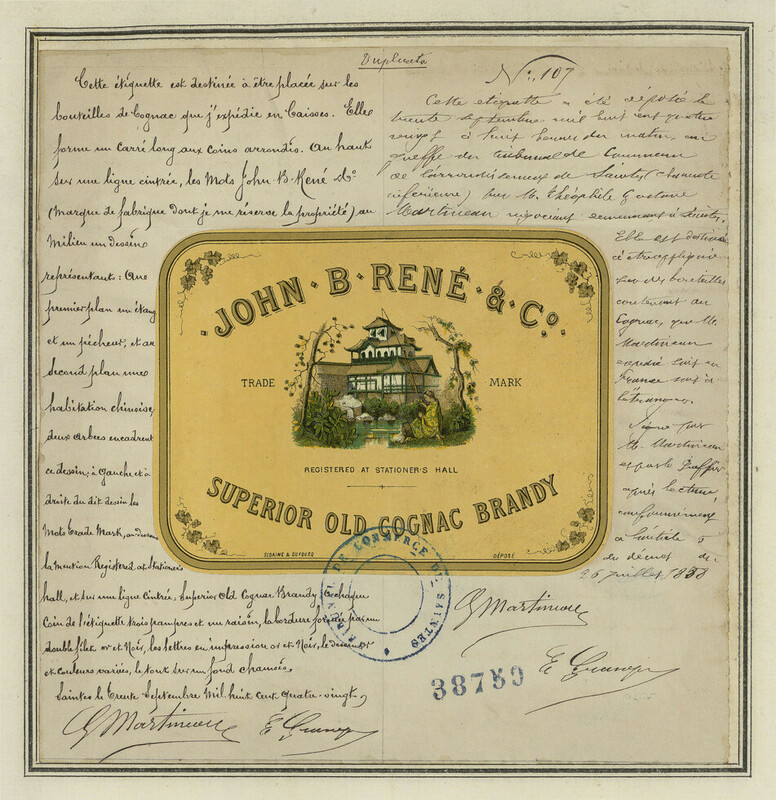 Duplicata
Cette étiquette est destinée à être placée sur les
bouteilles de Cognac que j'expédie en Caisses. Elle
forme un carré long aux coins arrondis. Au haut
sur une ligne cintrée, les Mots John B. René & Co
(Marque de fabrique dont je me réserve la propriété) au
Milieu un dessin
représentant : Au
premier plan un étang
et un pêcheur, et au
Second plan une
habitation chinoise,
deux arbres encadrent
ce dessin; à gauche et à
droite du dit dessin les
Mots Trade Mark, au dessous
la mention Registered at Stationer's
hall, et sur une ligne cintrée. Superior Old Cognac Brandy. à chaque
Coin de l'étiquette trois pampres et un raisin, la bordure formée par un
double filet or et Noir, les lettres en impression or et Noir, le dessin
et couleurs variées, le tout sur un fond chamois.
Saintes le trente Septembre Mil huit cent quatre-vingt
G Martineau
N° 107
Cette étiquette a été déposée le
trente septembre mil huit cent quatre
vingt à huit heures du matin, au
greffe du tribunal de Commerce
de l'arrondissement de Saintes (Charente
inférieure) par M. Théophile Gustave
Martineau négociant demeurant à Saintes.
Elle est destinée
à être appliquée
sur des bouteilles
contenant du
Cognac, que M.
Martineau
expédie soit en
France soit à
l'étranger.
Signé par
M. Martineau
et par le Greffier
après lecture
conformément
à l'article 5
du décret du
26 juillet 1858
G Martineau
JOHN · B · RENÉ · & · Co.
TRADE MARK
REGISTERED AT STATIONER'S HALL
SUPERIOR OLD COGNAC BRANDY
DÉPOSÉ
TRIBUNAL DE COMMERCE DE SAINTES
38750